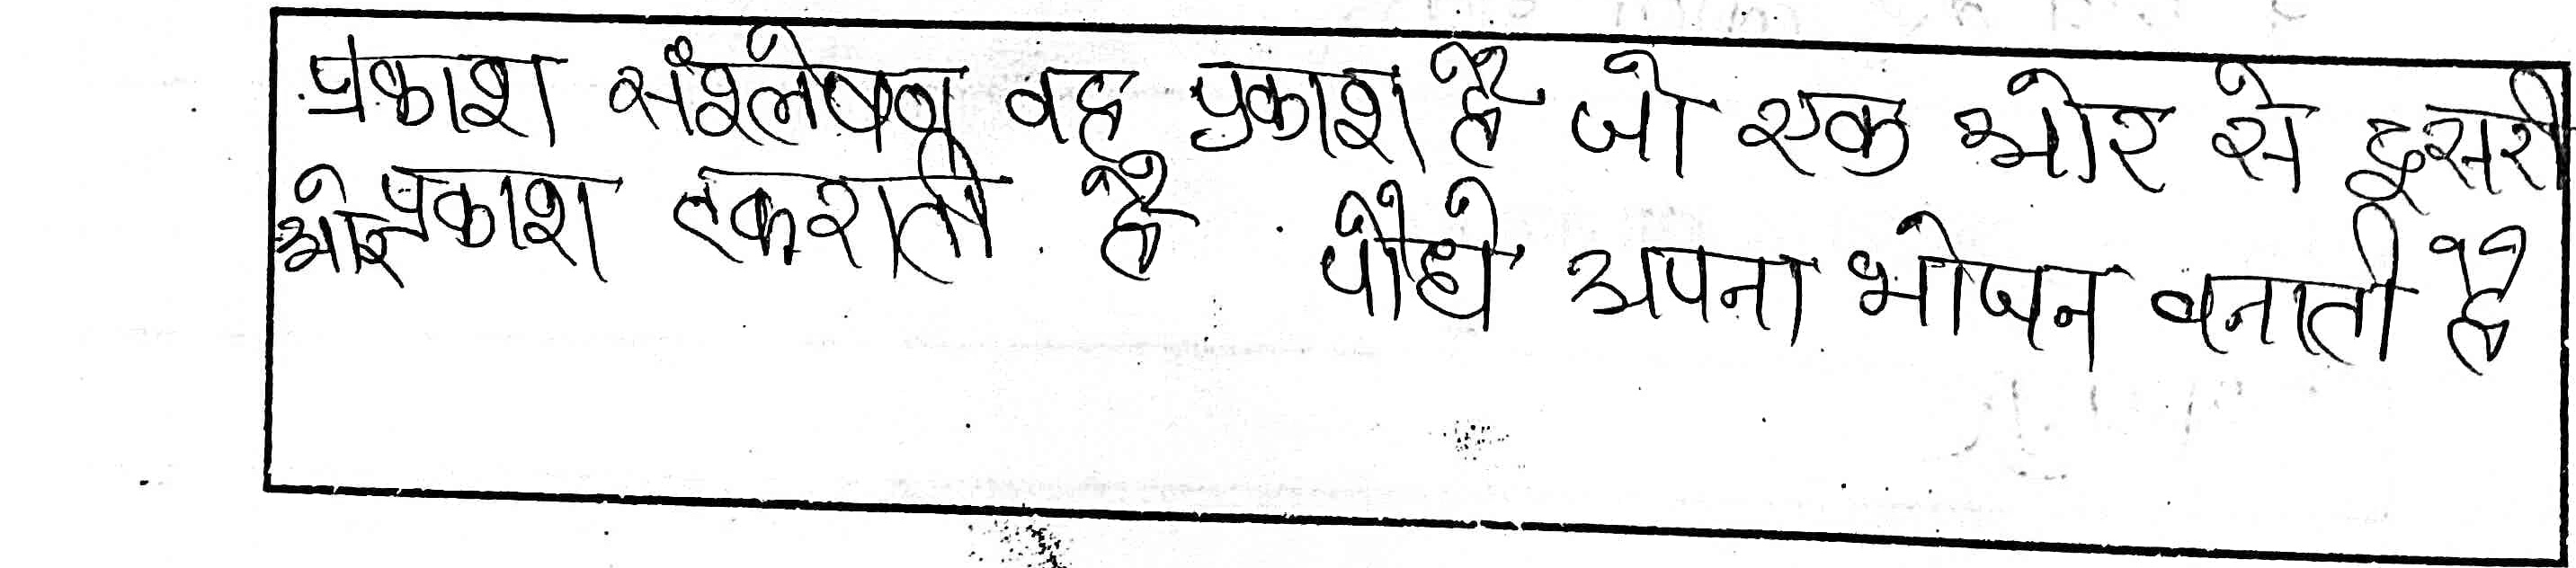 प्रकाश संश्लेषण वह प्रकाश है जो एक ओर से दूसरी
ओर प्रकाश टकराती है पौधे अपना भोजन बनाती है